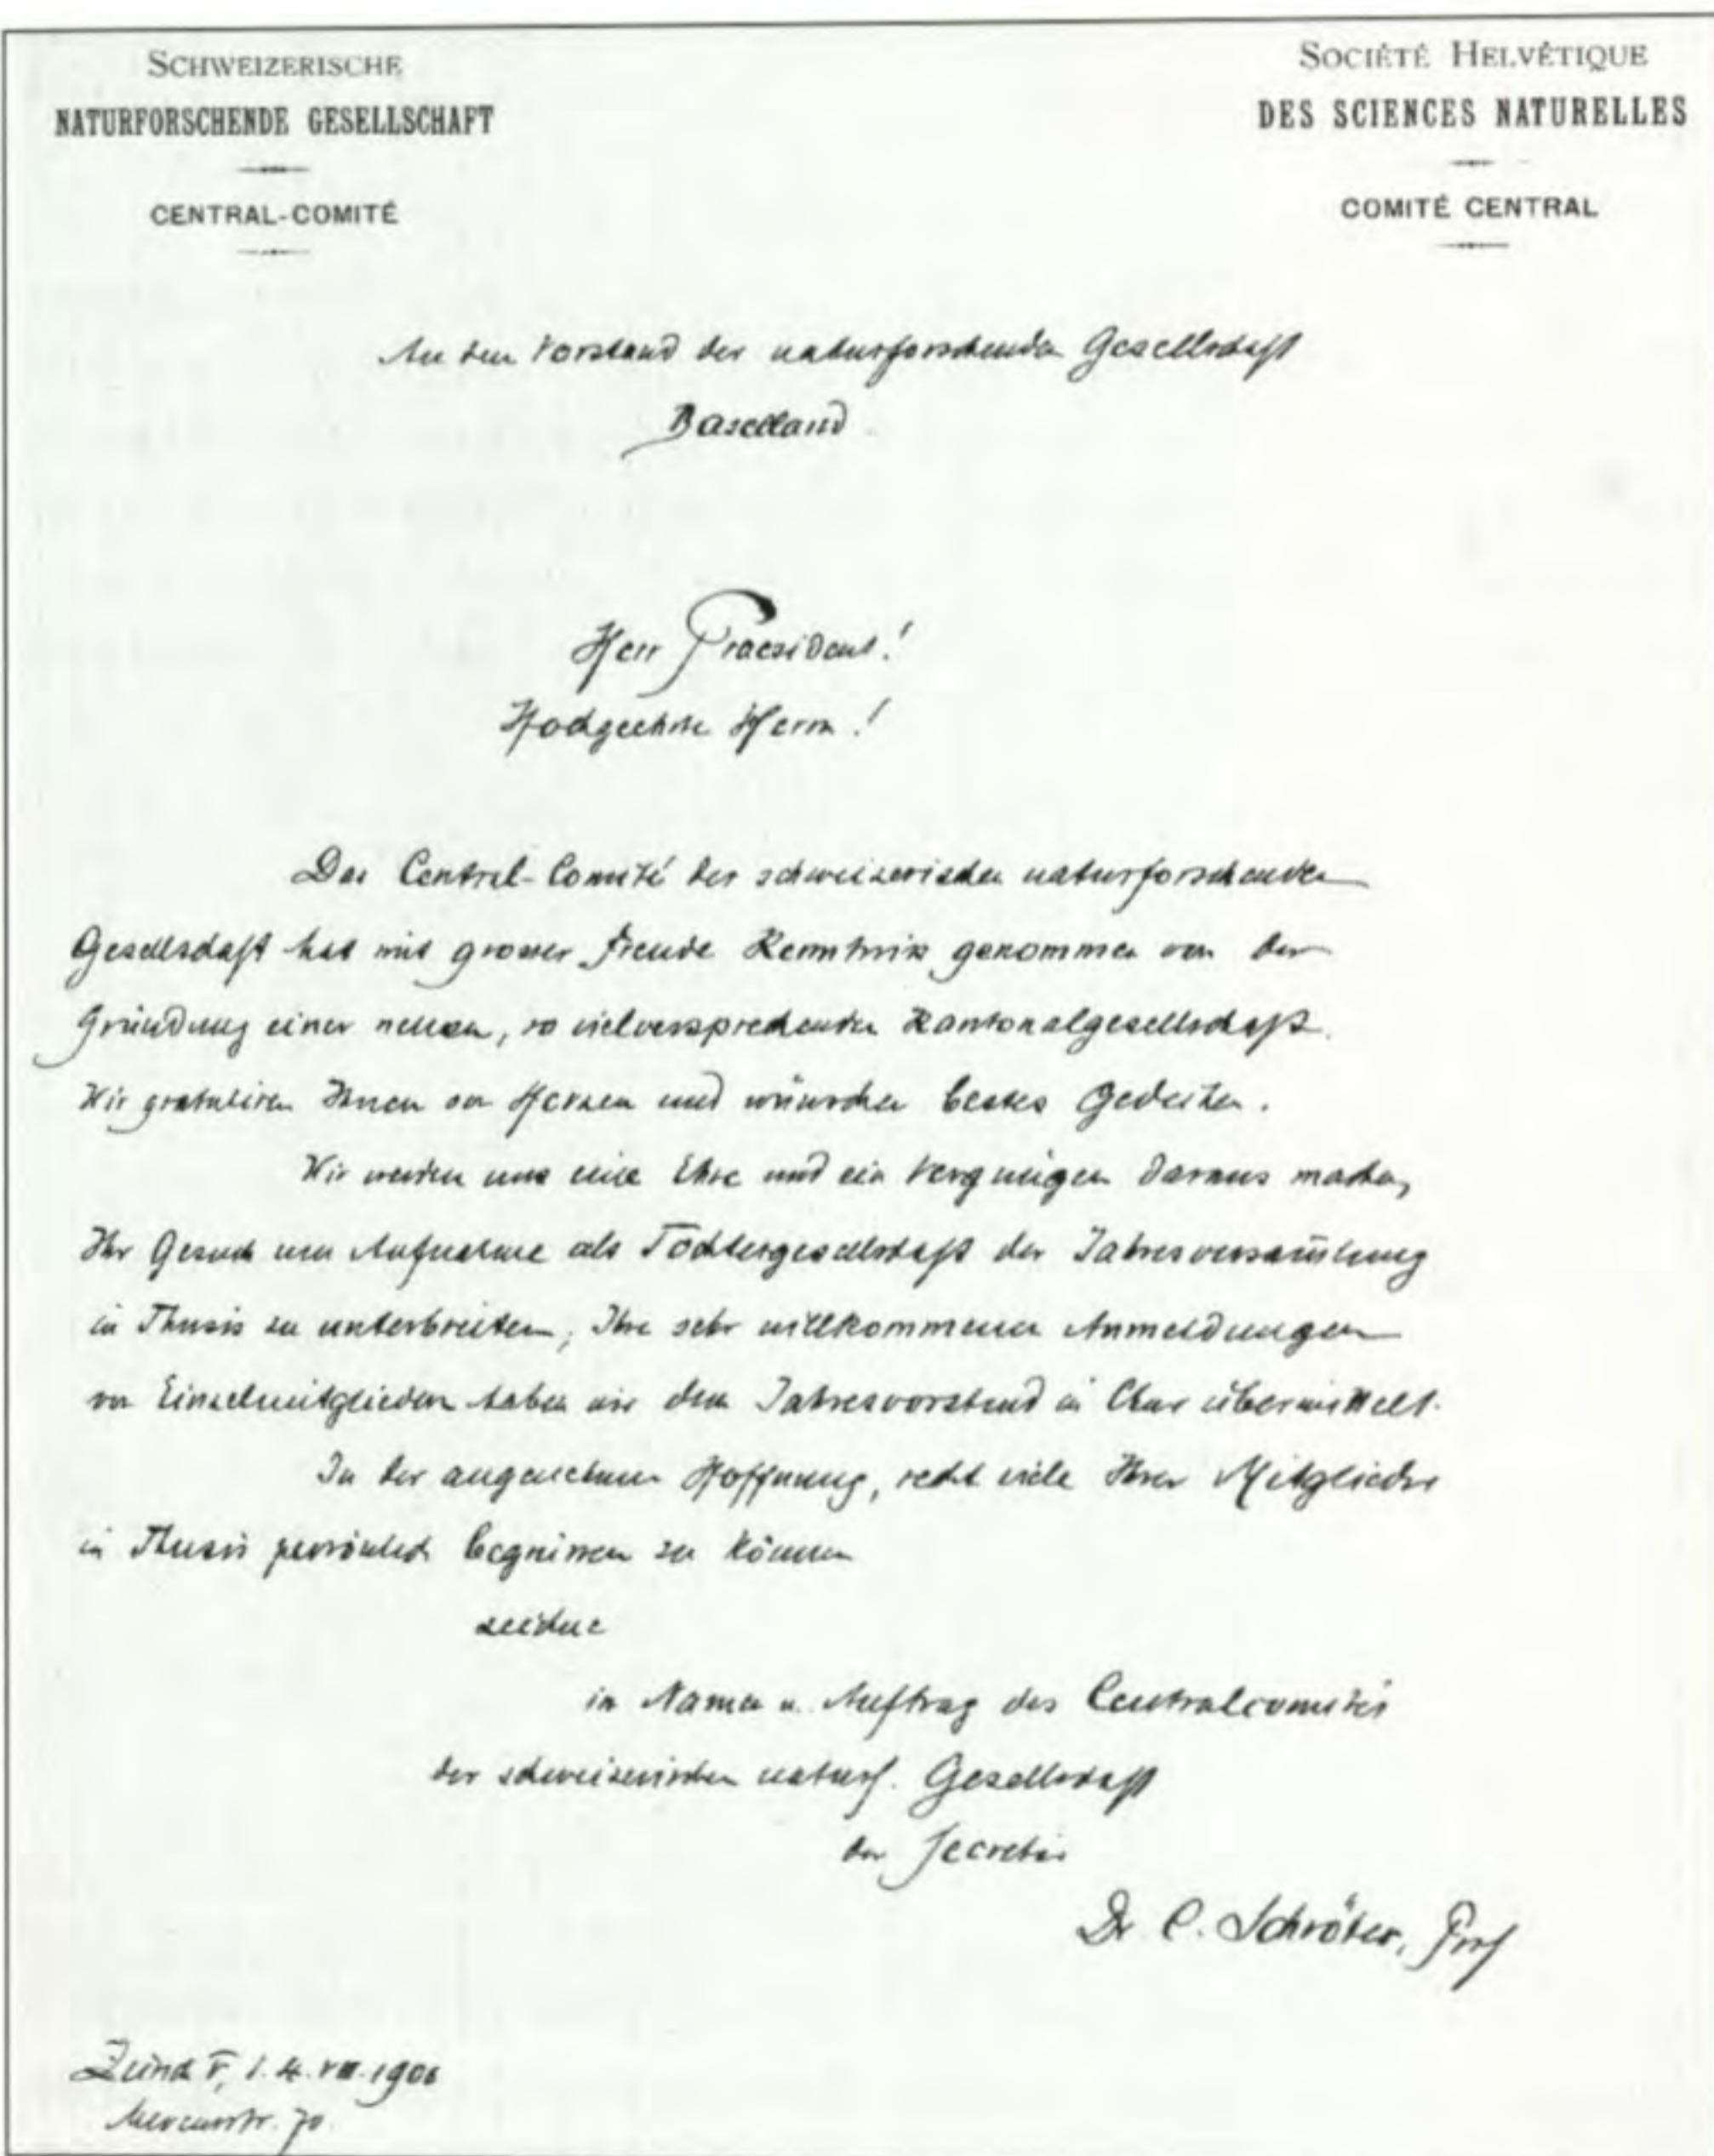 SCHWEIZERISCHE
NATURFORSCHENDE GESELLSCHAFT
CENTRAL-COMITÉ
SOCIÉTÉ HELVÉTIQUE
DES SCIENCES NATURELLES
COMITÉ CENTRAL
An den Vorstand der naturforschenden Gesellschaft
Baselland
Herr Praesident!
Hochgeehrte Herrn!
Das Central-Comité der schweizerischen naturforschenden
Gesellschaft hat mit grosser Freude Kenntniss genommen von der
Gründung einer neuen, so vielversprechenden Kantonalgesellschaft.
Wir gratuliren Ihnen von Herzen und wünschen bestes Gedeihen.
Wir werden uns eine Ehre und ein Vergnügen daraus machen,
Ihr Gesuch um Aufnahme als Tochtergesellschaft der Jahresversam̄lung
in Thusis zu unterbreiten; Ihre sehr willkommenen Anmeldungen
von Einzelmitgliedern haben wir dem Jahresvorstand in Chur übermittelt.
In der angenehmen Hoffnung, recht viele Ihrer Mitglieder
in Thusis persönlich begrüssen zu können
zeichne
in Namen u. Auftrag des Centralcomités
der schweizerischen naturf. Gesellschaft
der Secretär
Dr C. Schröter, Prof
Zürich V, 4. VII. 1900
70